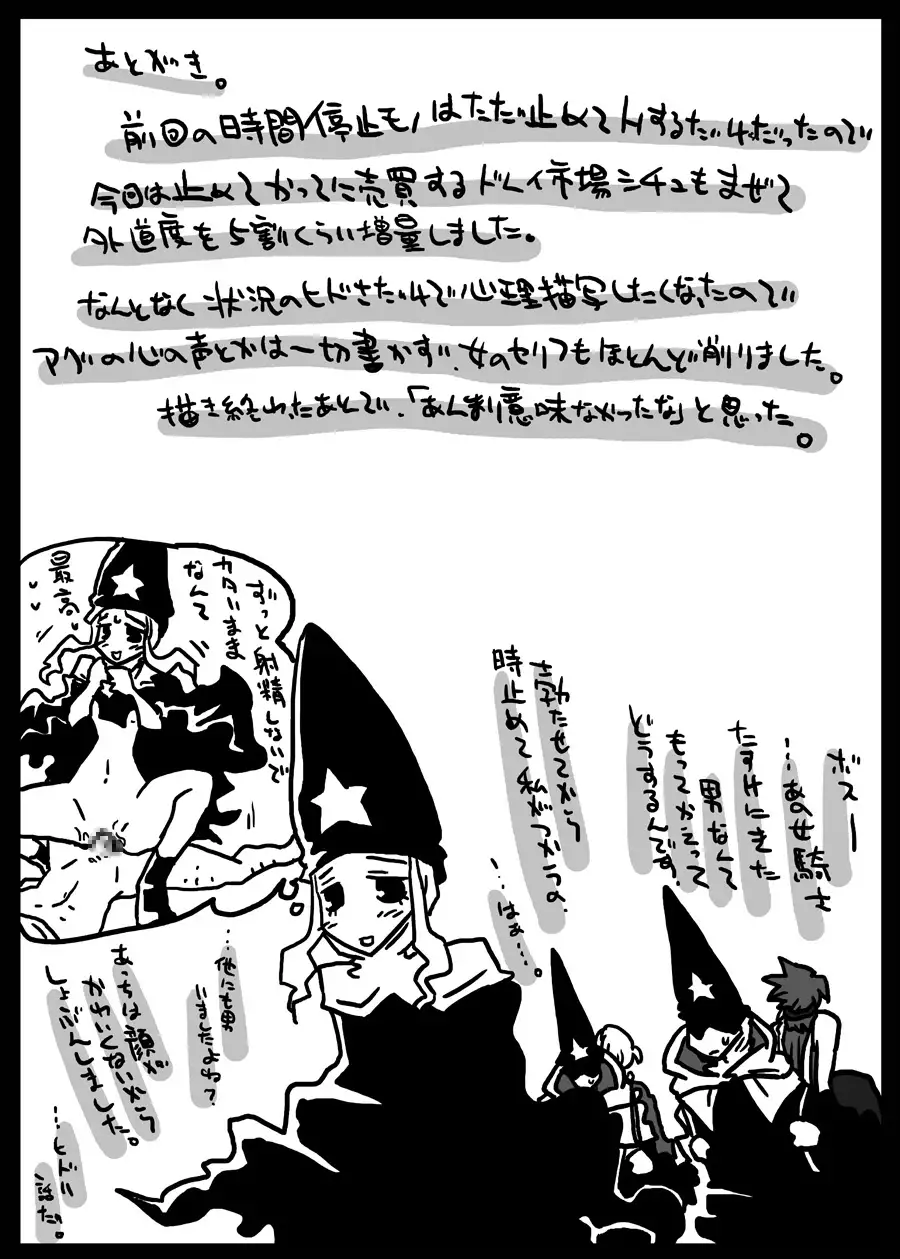 あとがき。
前回の時間停止モノはただ止めてHするだけだったので
今回は止めてかってに売買するドレイ市場シチュもまぜて
外道度を5割くらい増量しました。
なんとなく状況のヒドさだけで心理描写したくなったので
アゲの心の声とかは一切書かず、女のセリフもほとんど削りました。
描き終わったあとで、「あんま意味なかったな」と思った。
ボスー
…あの女騎士
たすけにきた
男なんて
もってかえって
どうするんです
勃たせてから
時止めて私がつかうの。
…はぁ…。
ずっと射精しないで
カタいまま
なんて
最高
…他にも男
いましたよね?
あっちは顔が
かわいくないから
しょぶんしました。
…ヒドい
話だ。